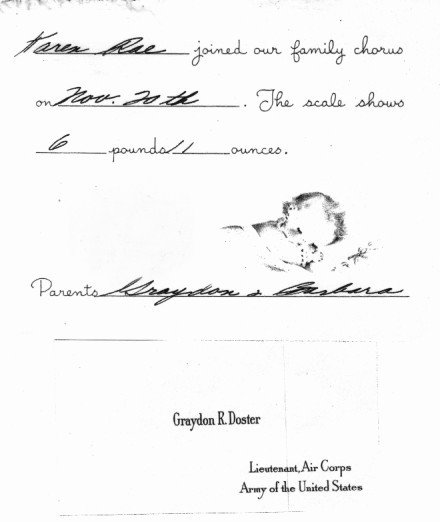 Karen Rae joined our family chorus
on Nov. 20th. The scale shows
6 pounds 11 ounces.
Parents Graydon & Barbara
Graydon R. Doster
Lieutenant, Air Corps
Army of the United States